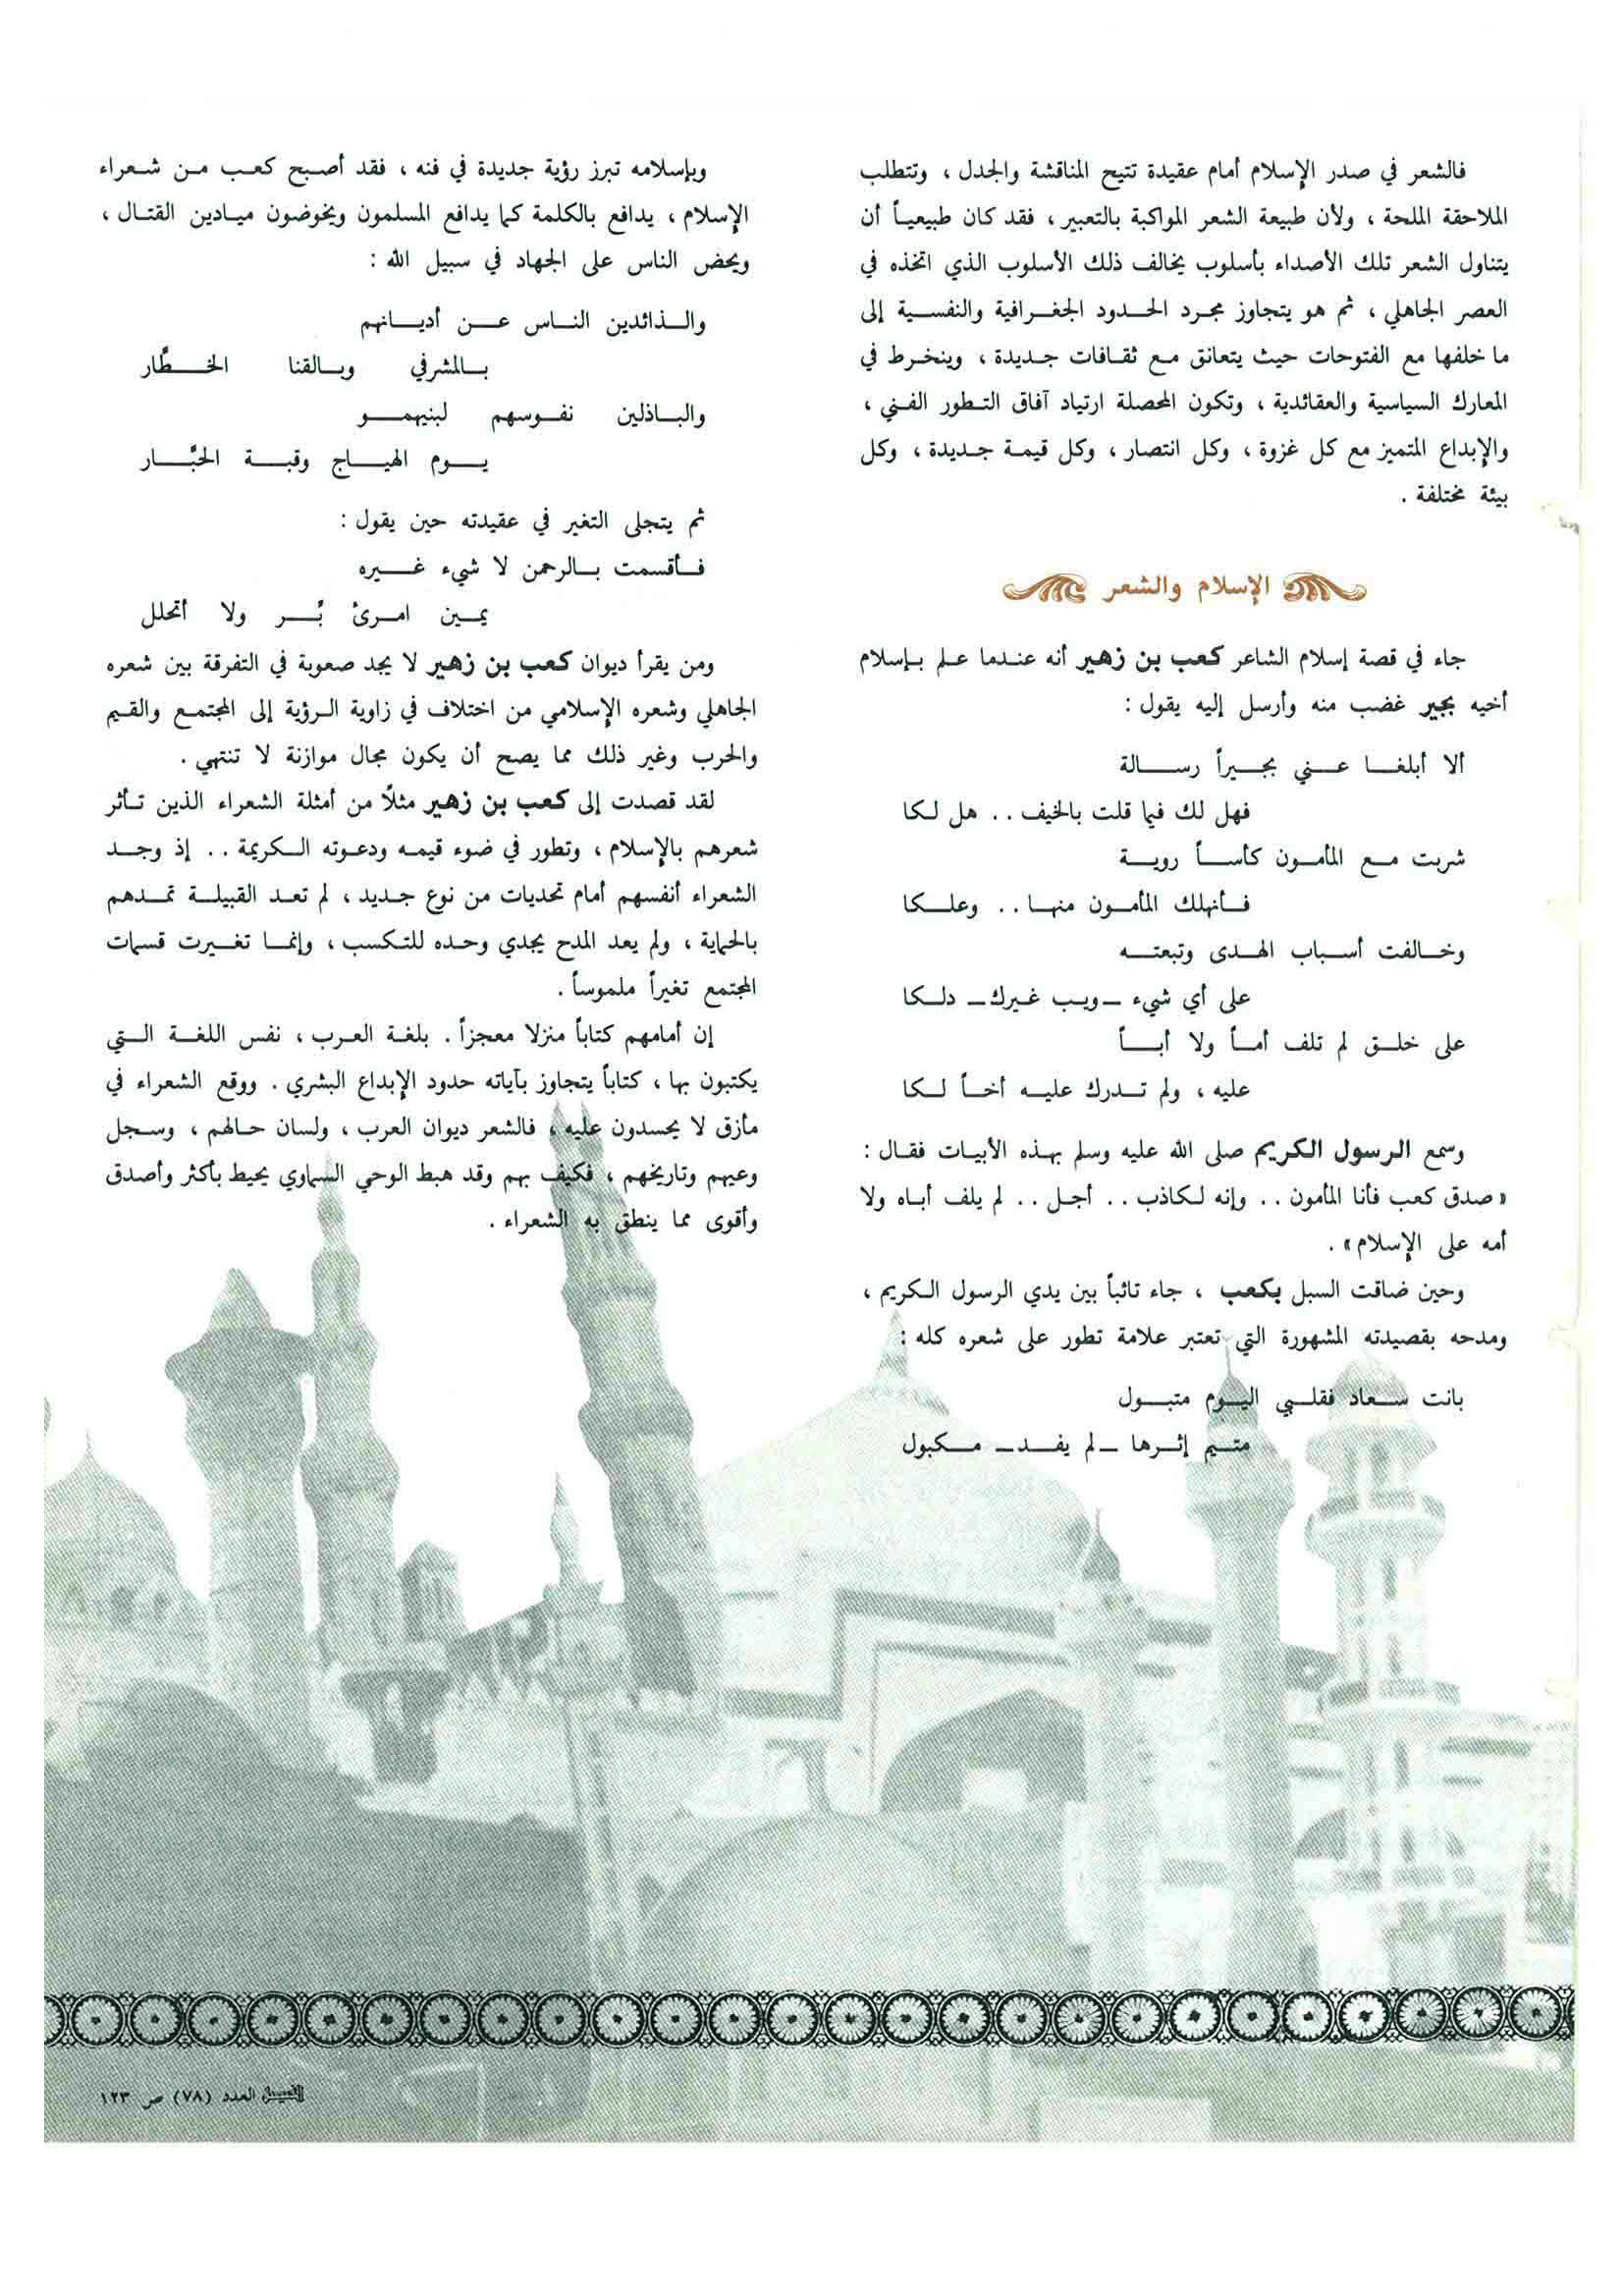 فالشعر في صدر الإسلام أمام عقيدة تتيح المناقشة والجدل ، وتتطلب
الملاحقة الملحة ، ولأن طبيعة الشعر المواكبة بالتعبير ، فقد كان طبيعياً أن
يتناول الشعر تلك الأصداء بأسلوب يخالف ذلك الأسلوب الذي اتخذه في
العصر الجاهلي ، ثم هو يتجاوز مجرد الحدود الجغرافية والنفسية إلى
ما خلفها مع الفتوحات حيث يتعانق مع ثقافات جديدة ، وينخرط في
المعارك السياسية والعقائدية ، وتكون المحصلة ارتياد آفاق التطور الفني ،
والإبداع المتميز مع كل غزوة ، وكل انتصار ، وكل قيمة جديدة ، وكل
بيئة مختلفة .
الإسلام والشعر
جاء في قصة إسلام الشاعر كعب بن زهير أنه عندما علم بإسلام
أخيه بجير غضب منه وأرسل إليه يقول :
ألا أبلغا عني بجيراً رسالة
فهل لك فيما قلت بالخيف . . هل لكا
شربت مع المأمون كأساً روية
فأنهلك المأمون منها . . وعلكا
وخالفت أسباب الهدى وتبعته
على أي شيء – ويب غيرك – دلكا
على خلق لم تلف أماً ولا أباً
عليه ، ولم تدرك عليه أخاً لكا
وسمع الرسول الكريم صلى الله عليه وسلم بهذه الأبيات فقال :
« صدق كعب فأنا المأمون . . وإنه لكاذب . . أجل . . لم يلف أباه ولا
أمه على الإسلام» .
وحين ضاقت السبل بكعب ، جاء تائباً بين يدي الرسول الكريم ،
ومدحه بقصيدته المشهورة التي تعتبر علامة تطور على شعره كله :
بانت سعاد فقلبي اليوم متبول
متيم إثرها – لم يفد – مكبول
وبإسلامه تبرز رؤية جديدة في فنه ، فقد أصبح كعب من شعراء
الإسلام ، يدافع بالكلمة كما يدافع المسلمون ويخوضون ميادين القتال ،
ويحض الناس على الجهاد في سبيل الله :
والذائدين الناس عن أديانهم
بالمشرفي وبالقنا الخطَّار
والباذلين نفوسهم لبنيهمو
يوم الهياج وقبة الجبَّار
ثم يتجلى التغير في عقيدته حين يقول :
فأقسمت بالرحمن لا شيء غيره
يمين امرئ بُر ولا أتحلل
ومن يقرأ ديوان كعب بن زهير لا يجد صعوبة في التفرقة بين شعره
الجاهلي وشعره الإسلامي من اختلاف في زاوية الرؤية إلى المجتمع والقيم
والحرب وغير ذلك مما يصح أن يكون مجال موازنة لا تنتهي .
لقد قصدت إلى كعب بن زهير مثلاً من أمثلة الشعراء الذين تأثر
شعرهم بالإسلام ، وتطور في ضوء قيمه ودعوته الكريمة . . إذ وجد
الشعراء أنفسهم أمام تحديات من نوع جديد ، لم تعد القبيلة تمدهم
بالحماية ، ولم يعد المدح يجدي وحده للتكسب ، وإنما تغيرت قسمات
المجتمع تغيراً ملموساً .
إن أمامهم كتاباً منزلا معجزاً . بلغة العرب ، نفس اللغة التي
يكتبون بها ، كتاباً يتجاوز بآياته حدود الإبداع البشري . ووقع الشعراء في
مأزق لا يحسدون عليه ، فالشعر ديوان العرب ، ولسان حالهم ، وسجل
وعيهم وتاريخهم ، فكيف بهم وقد هبط الوحي السماوي يحيط بأكثر وأصدق
وأقوى مما ينطق به الشعراء .
الفيصل العدد (٧٨) ص ١٢٣